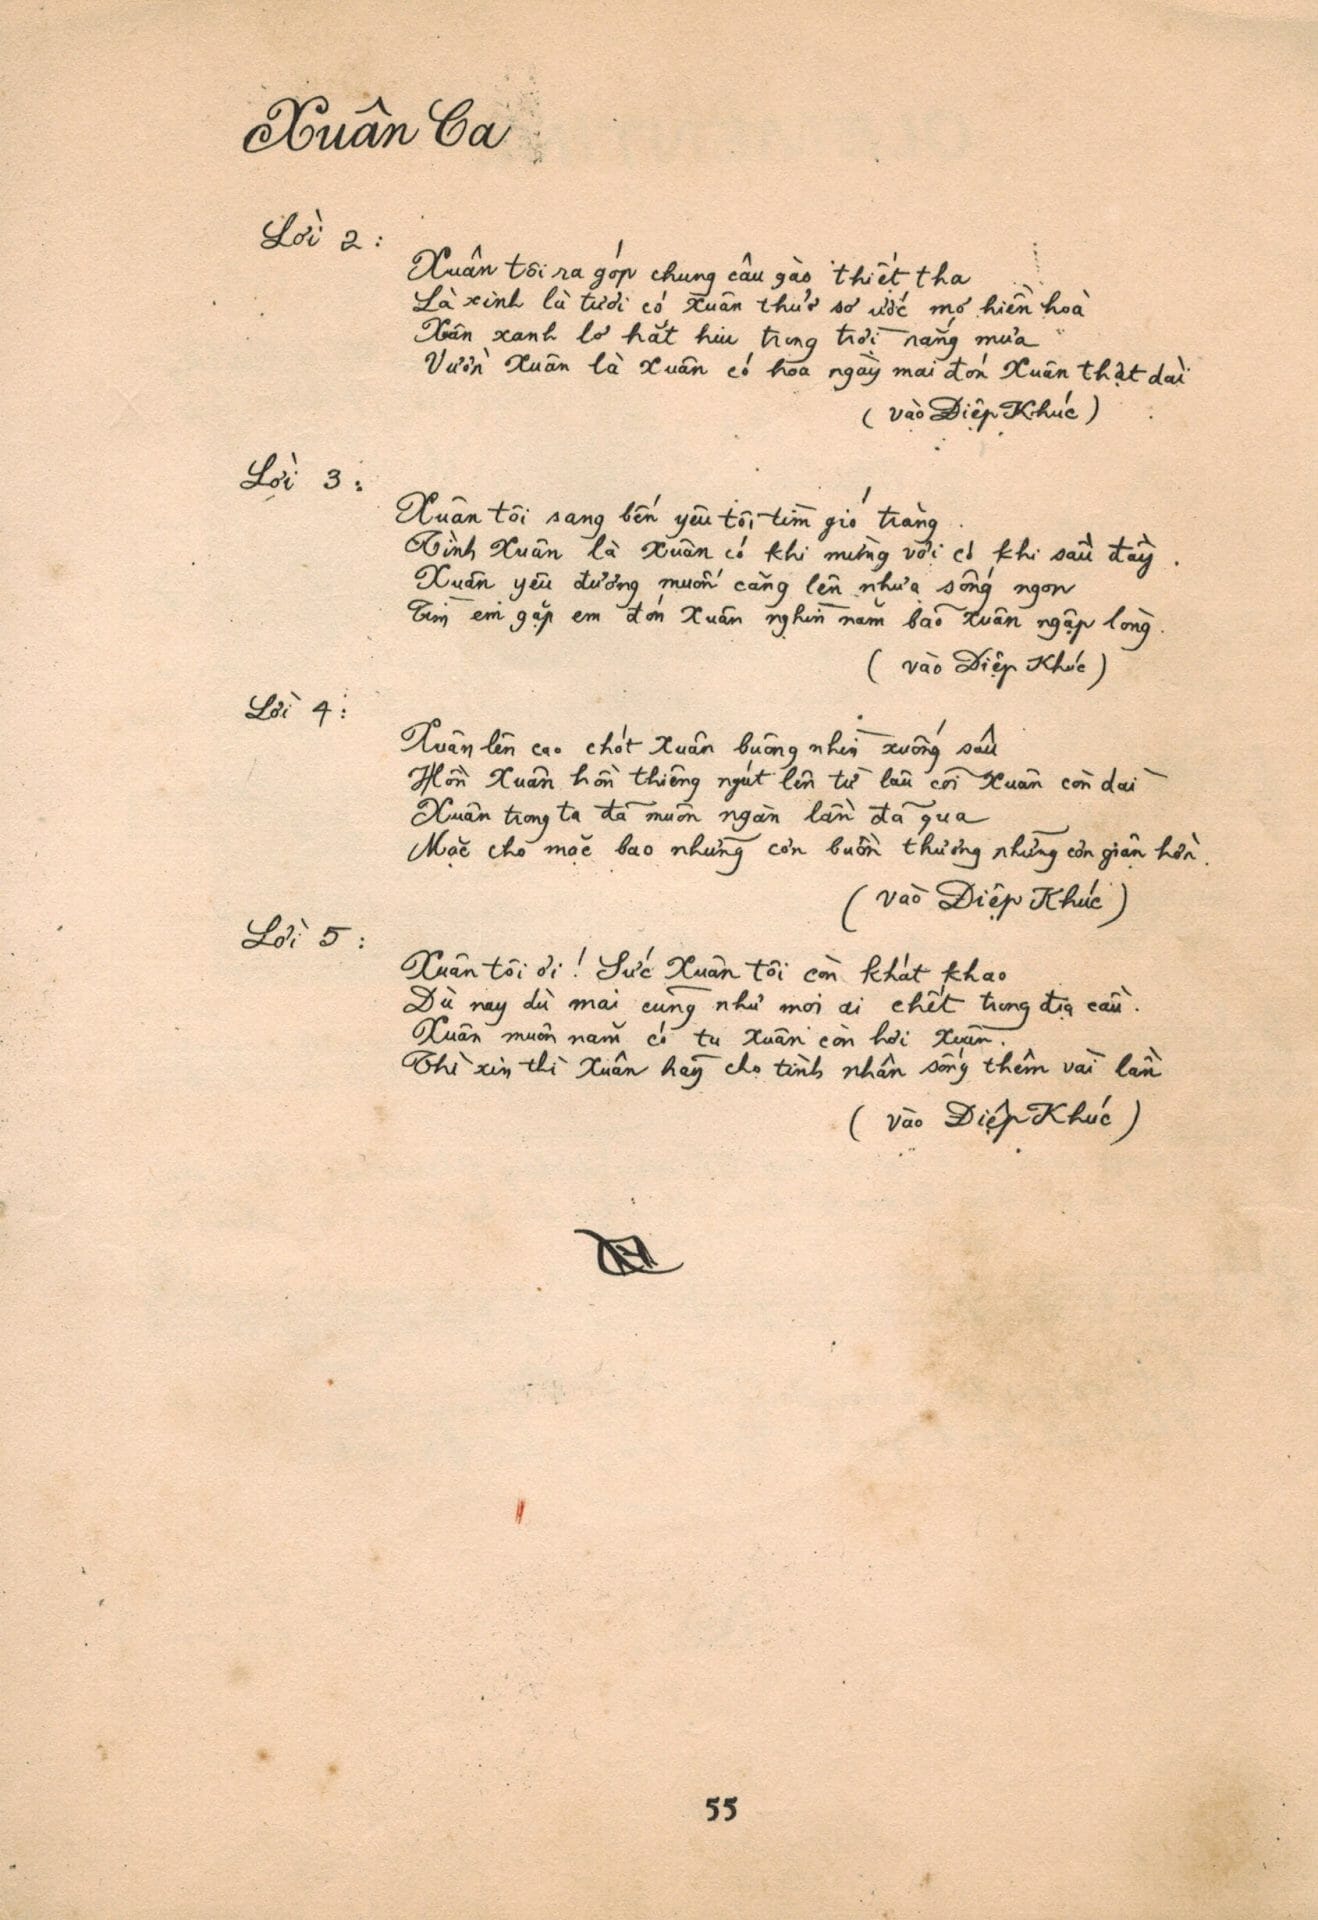 Xuân Ca
Lời 2 :
Xuân tôi ra góp chung câu gào thiết tha
Là xinh là tươi có Xuân thuở sơ ước mơ hiền hoà
Xuân xanh lơ hắt hiu trong trời nắng mưa
Vườn Xuân là Xuân có hoa ngày mai đón Xuân thật dài
( vào Điệp Khúc )
Lời 3 :
Xuân tôi sang bến yêu tôi tìm gió trăng .
Tình Xuân là Xuân có khi mừng vời có khi sầu đầy .
Xuân yêu đương muốn căng lên nhựa sống ngon
Tìm em gặp em đón Xuân nghìn năm bão Xuân ngập lòng .
( vào Điệp Khúc )
Lời 4 :
Xuân lên cao chót Xuân buông nhìn xuống sâu
Hồn Xuân hồn thiêng ngút lên từ lâu cõi Xuân còn dài
Xuân trong ta đã muôn ngàn lần đã qua
Mặc cho mặc bao những cơn buồn thương những cơn giận hờn .
( vào Điệp Khúc )
Lời 5 :
Xuân tôi ơi ! Sức Xuân tôi còn khát khao
Dù nay dù mai cũng như mọi ai chết trong địa cầu .
Xuân muôn năm có tu Xuân còn hơi Xuân .
Thì xin thì Xuân hãy cho tình nhân sống thêm vài lần
( vào Điệp Khúc )
55